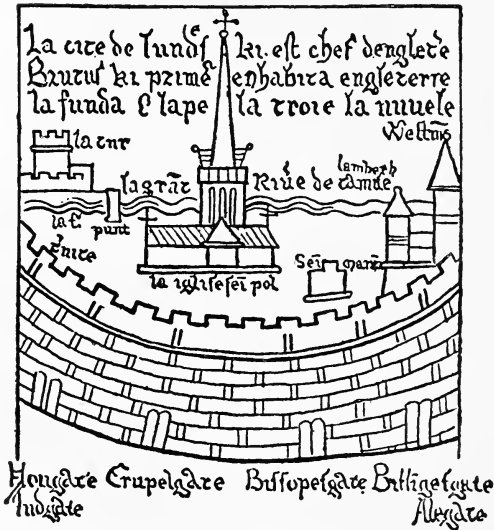 La cite de lundſ ki est chef dengletere
Brutus ki primes enhabita engleterre
la funda e lape la troie la nuuele
Westmus
la tur
lambeth
la grāt Riũe de tamise
punt
la t͛nite
Sein mart
la iglise sei pol
Hougate Crupelgate Bissopesgate Billigesgate
ludgate Alegate